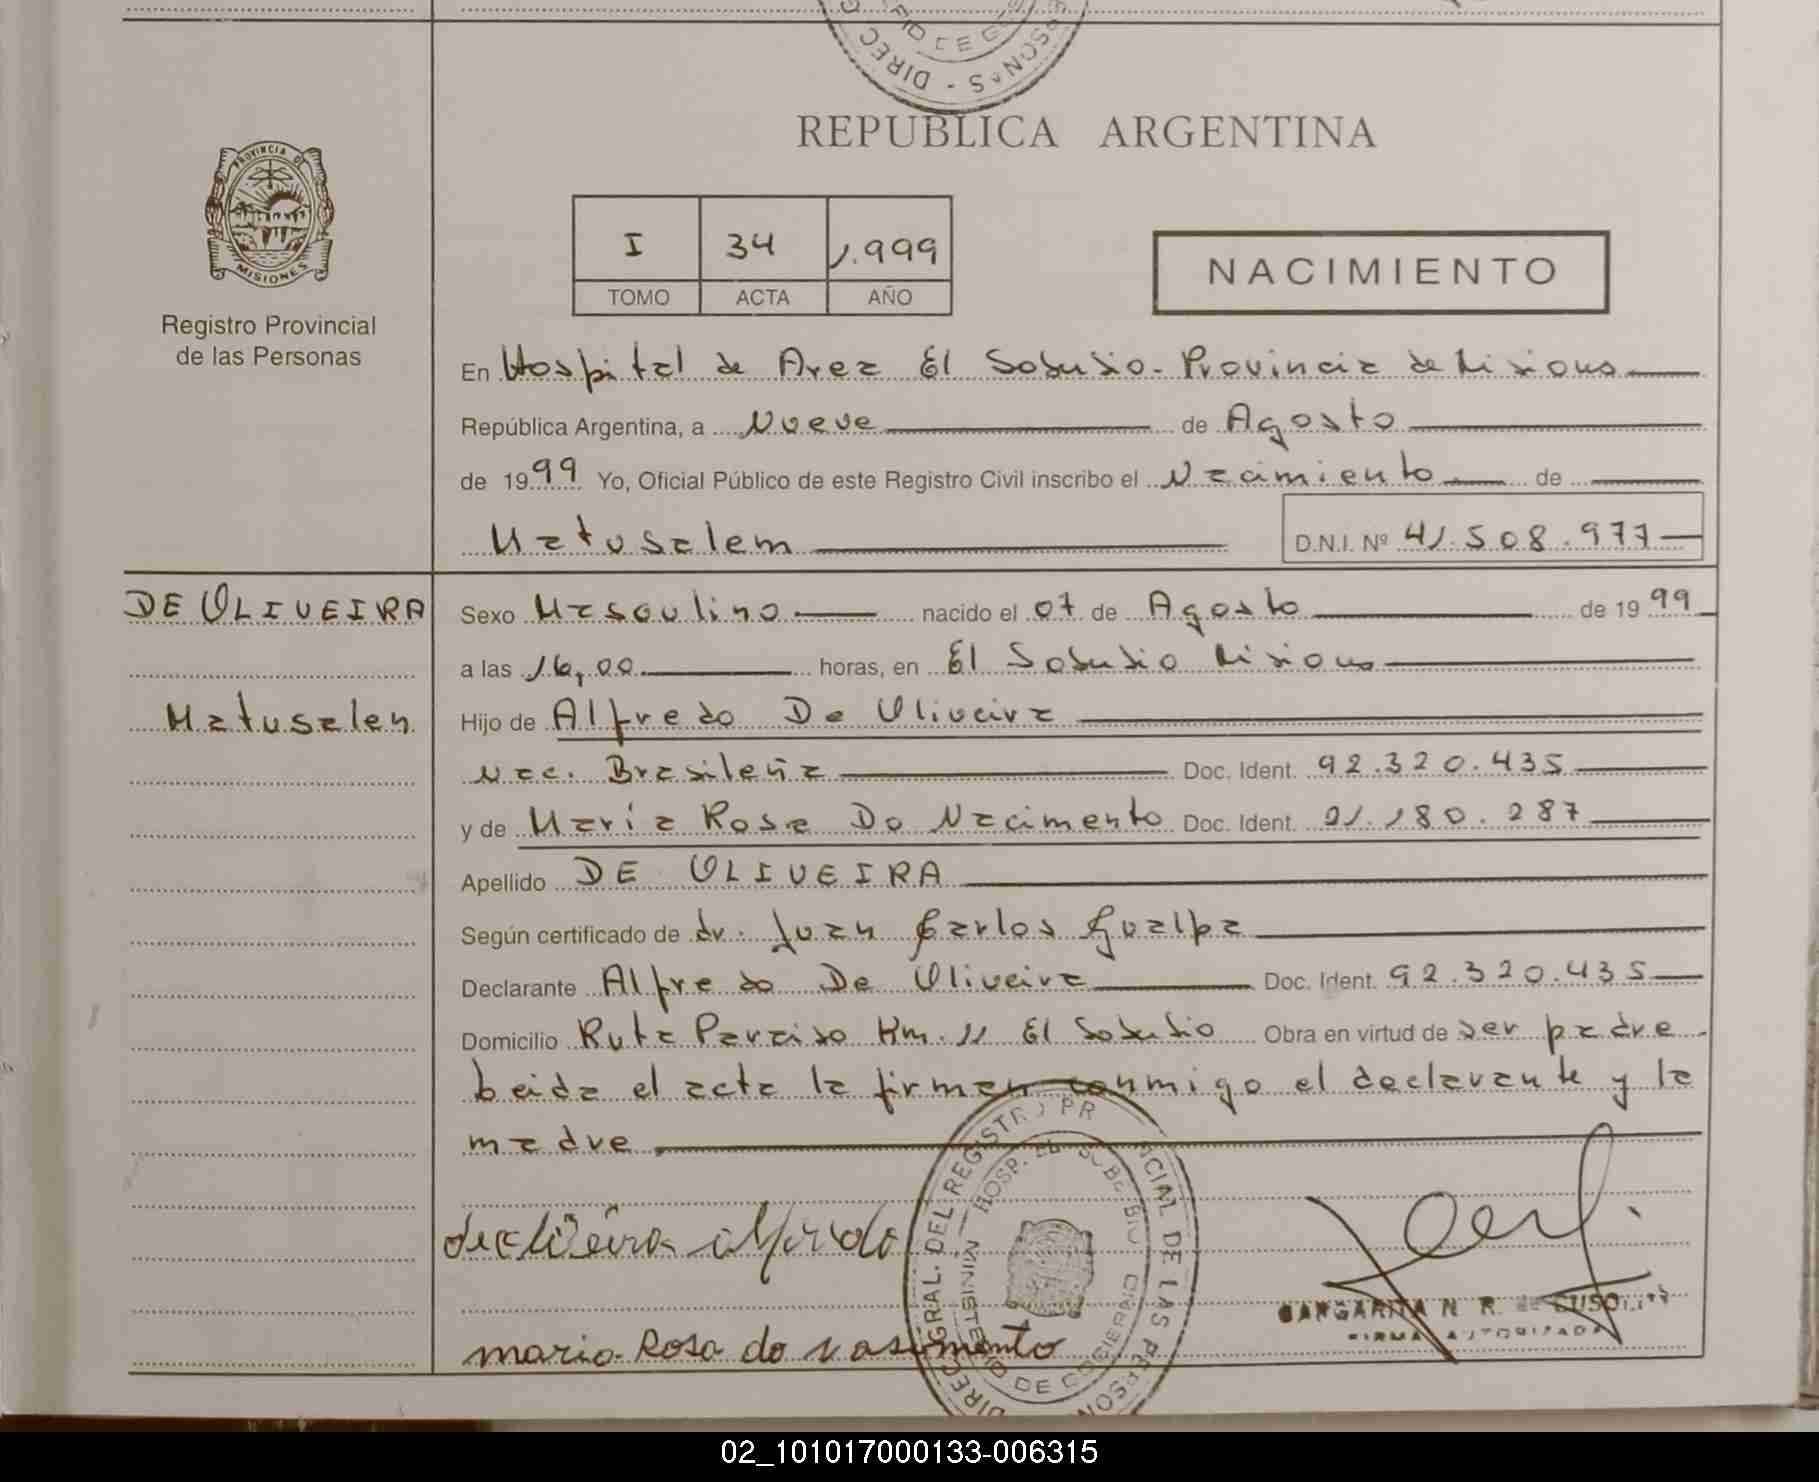 DIREC
RIO DE GO
PERSONAS
REPUBLICA ARGENTINA
PROVINCIA DE
MISIONES
Registro Provincial
de las Personas
I 34 1.999
TOMO ACTA AÑO
NACIMIENTO
En Hospital de Area El Soberbio - Provincia de Misiones
República Argentina, a Nueve de Agosto
de 1999 Yo, Oficial Público de este Registro Civil inscribo el Nacimiento de
Matusalem D.N.I. Nº 41.508.977
DE OLIVEIRA
Matusalen
Sexo Masculino nacido el 07 de Agosto de 1999
a las 16,00 horas, en El Soberbio Misiones
Hijo de Alfredo De Oliveira
Nac. Brasileña Doc. Ident. 92.320.435
y de Maria Rosa Do Nacimento Doc. Ident. 21.180.287
Apellido DE OLIVEIRA
Según certificado de dr. Juan Carlos Gualpa
Declarante Alfredo De Oliveira Doc. Ident. 92.320.435
Domicilio Ruta Paraiso Km. 11 El Soberbio Obra en virtud de ser padre
Leida el acta la firman conmigo el declarante y la
madre
deoliveira alfredo
maria Rosa do nasimento
DIREC. GRAL. DEL REGISTRO PR CIAL DE LAS PERSON
MINISTERIO DE GOBIERNO
HOSP. EL SOBERBIO
MARGARITA N R. de
FIRMA AUTORIZADA
02_101017000133-006315